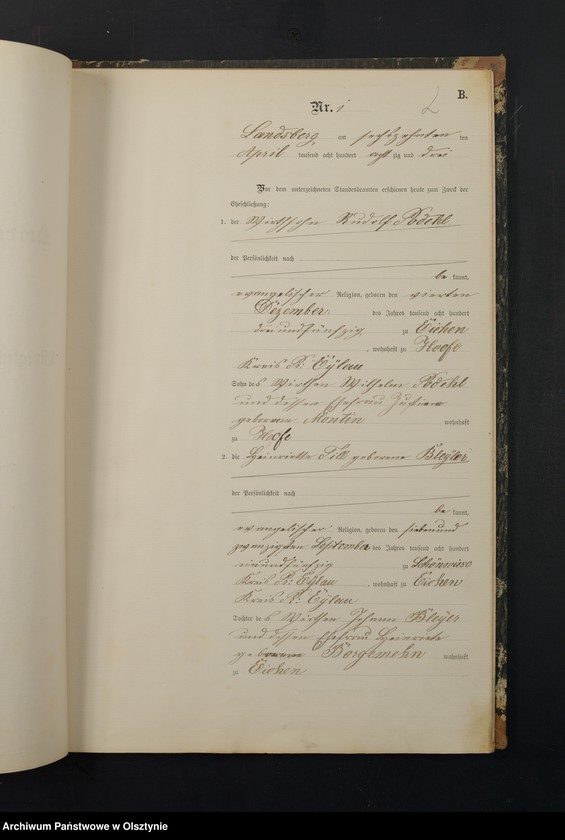 B.
Nr. 1 2
Landsberg am sechszehnten ten
April tausend acht hundert acht zig und drei
Vor dem unterzeichneten Standesbeamten erschienen heute zum Zweck der
Eheschließung:
1. der Wirthssohn Rudolf Roehl
der Persönlichkeit nach
be kannt,
evangelischer Religion, geboren den vierten
Dezember des Jahres tausend acht hundert
dreiundfünfzig zu Eichen
, wohnhaft zu Hoofe
Kreis Pr. Eylau
Sohn des Wirthen Wilhelm Roehl
und dessen Ehefrau Justine
geborene Montin wohnhaft
zu Hoofe
2. die Henriette Till geborene Bleyer
der Persönlichkeit nach
be kannt,
evangelischer Religion, geboren den siebenund
zwanzigsten September des Jahres tausend acht hundert
einundfünfzig zu Schönwiese
Kreis Pr. Eylau , wohnhaft zu Eichen
Kreis Pr. Eylau
Tochter des Wirthen Johann Bleyer
und dessen Ehefrau Henriette
geborene Borgemehn wohnhaft
zu Eichen
Archiwum Państwowe w Olsztynie